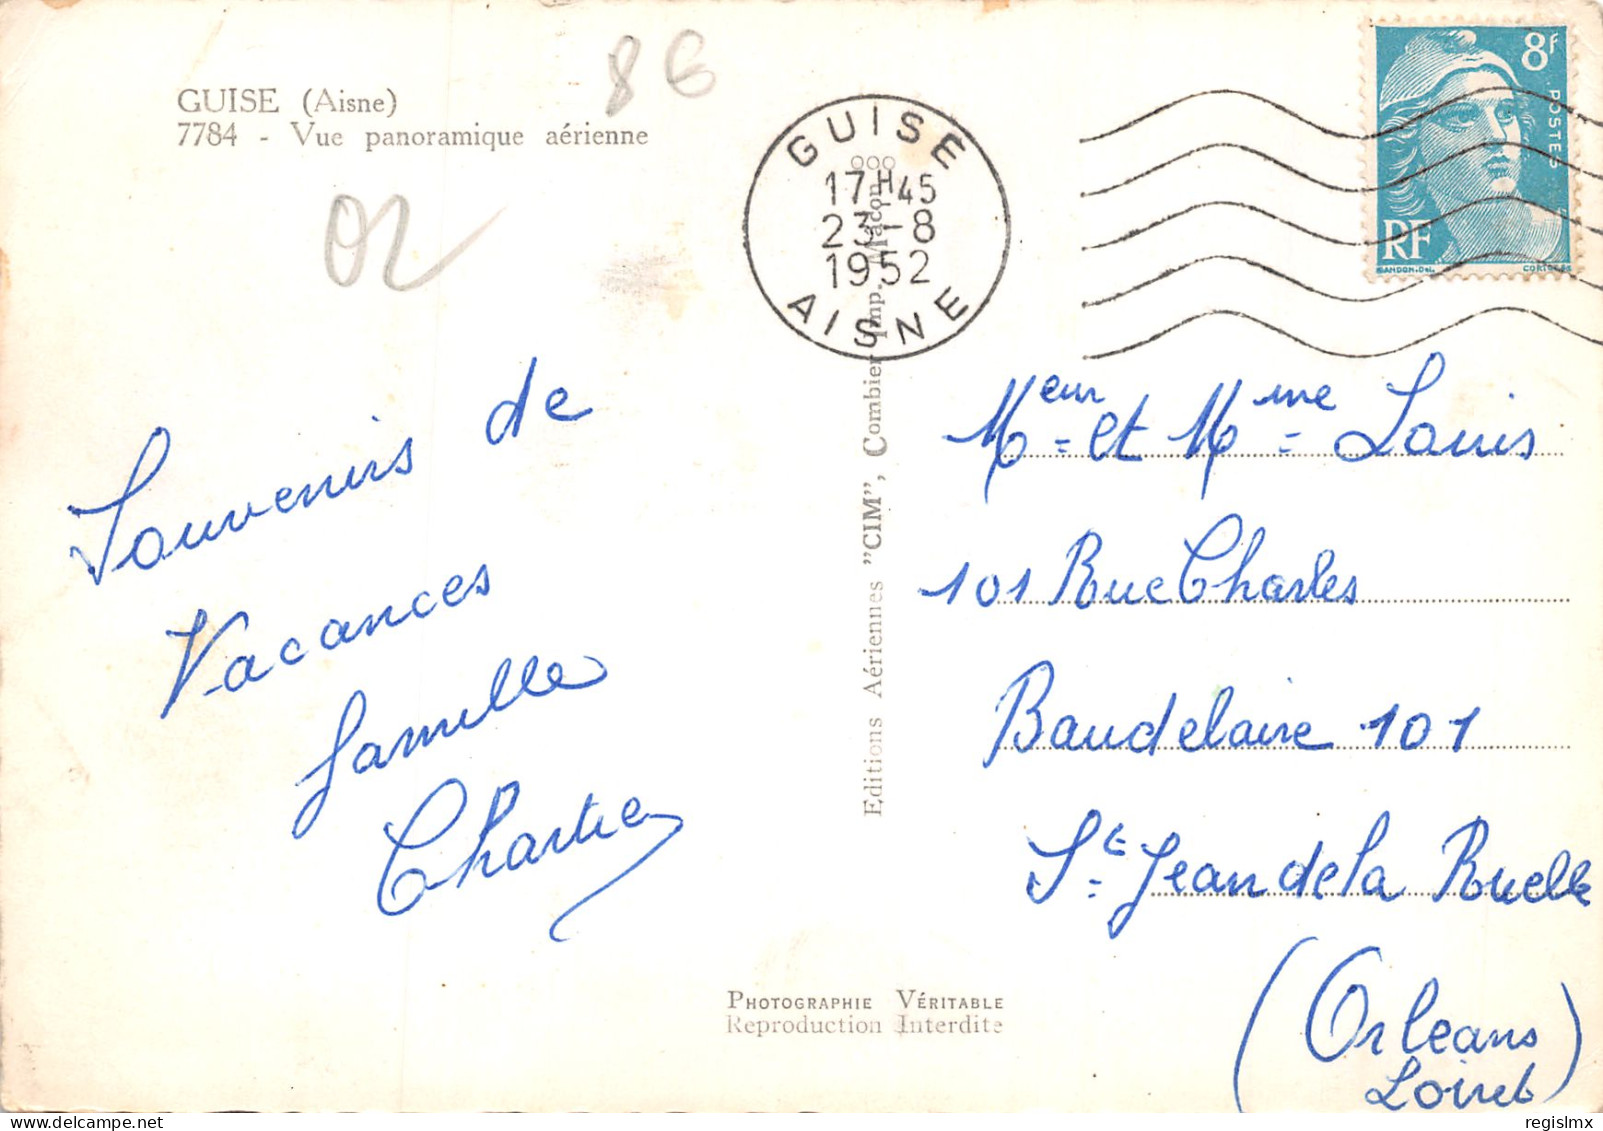 GUISE (Aisne)
7784 - Vue panoramique aérienne
8 6
02
GUISE
17H45
23-8
1952
AISNE
8F
POSTES
RF
GANDON.Del.
CORTOT.SC
Souvenirs de
Vacances
famille
Chartier
Editions Aériennes "CIM", Combier Imp. Macon
Meur et Mme Louis
101 Rue Charles
Baudelaire 101
St Jean de la Ruelle
(Orleans
Loiret)
PHOTOGRAPHIE VÉRITABLE
Reproduction Interdite
regislmx